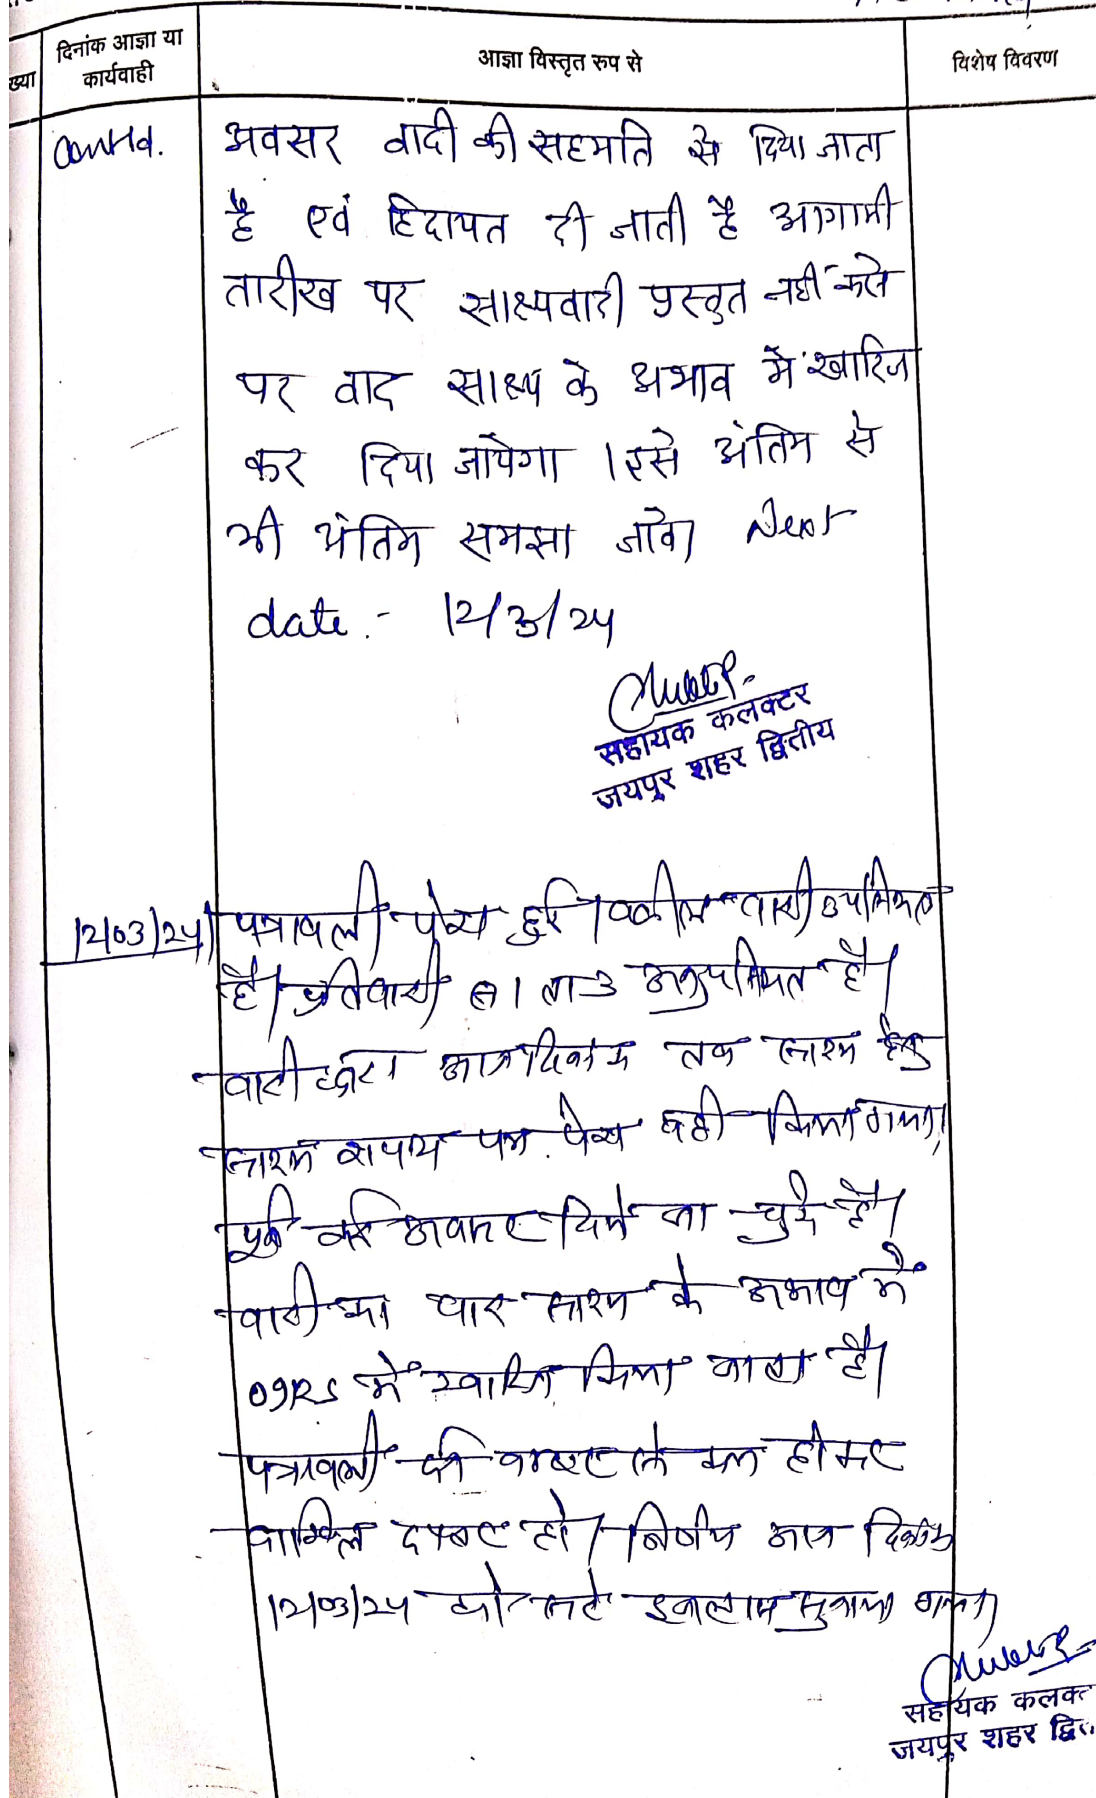 ख्या
दिनांक आज्ञा या
कार्यवाही
आज्ञा विस्तृत रुप से
विशेष विवरण
Contd.
अवसर वादी की सहमति से दिया जाता
है एवं हिदायत दी जाती है आगामी
तारीख पर साक्ष्यवादी प्रस्तुत नहीं करने
पर वाद साक्ष्य के अभाव में खारिज
कर दिया जायेगा । इसे अंतिम से
भी अंतिम समझा जावे। Next
date :- 12/3/24
सहायक कलक्टर
जयपुर शहर द्वितीय
12/03/24
पत्रावली पेश हुई । वकील वादी उपस्थित
है। प्रतिवादी सं 1 ता 3 अनुपस्थित है।
वादी द्वारा आज दिनांक तक साक्ष्य हेतु
साक्ष्य शपथ पत्र पेश नहीं किया गया।
पूर्व कई अवसर दिये जा चुके है।
वादी का वाद साक्ष्य के अभाव में
O9R8 में खारिज किया जाता है।
पत्रावली नम्बर से कम होकर
दाखिल दफ्तर हो। निर्णय आज दिनांक
12/03/24 को सरे इजलास सुनाया गया।
सहायक कलक्ट
जयपुर शहर द्वि